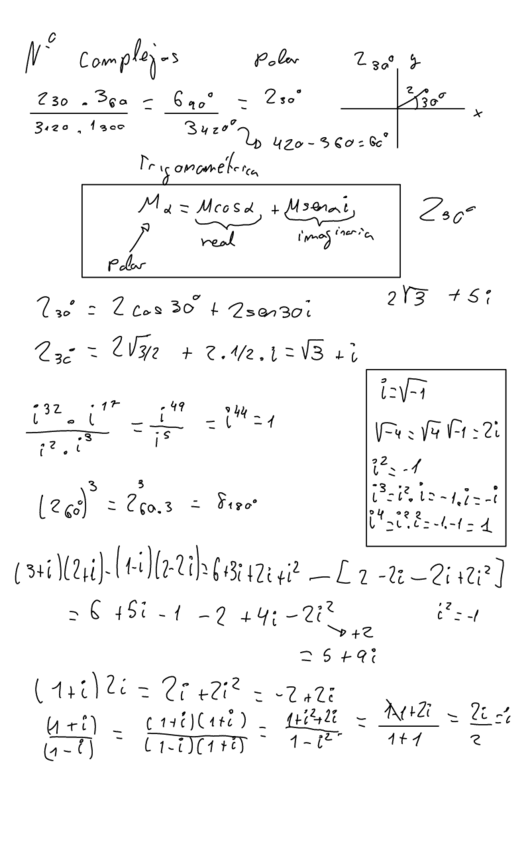 Nº Complejos Polar 2₃₀º y
(2₃₀ · 3₆₀)/(3₁₂₀ · 1₃₀₀) = 6₉₀º/3₄₂₀º = 2₃₀º 2 30º x
420 - 360 = 60º
Trigonométrica
Mα = Mcosα + Msenαi 2₃₀º
real imaginaria
Polar
2₃₀º = 2 cos 30º + 2sen30i 2√3 + 5i
2₃₀º = 2√3/2 + 2.1/2.i = √3 + i
i=√-1
(i³² · i¹⁷)/(i² · i³) = i⁴⁹/i⁵ = i⁴⁴ = 1
√-4 = √4 √-1 = 2i
i² = -1
i³ = i².i = -1.i = -i
i⁴ = i².i² = -1.-1 = 1
(2₆₀º)³ = 2³₆₀.₃ = 8₁₈₀º
(3+i)(2+i)-(1-i)(2-2i) = 6+3i+2i+i² - [2-2i-2i+2i²]
= 6 + 5i - 1 - 2 + 4i - 2i² i² = -1
+2
= 5 + 9i
(1+i)2i = 2i + 2i² = -2 + 2i
(1+i)/(1-i) = (1+i)(1+i)/(1-i)(1+i) = (1+i²+2i)/(1-i²) = (1-1+2i)/(1+1) = 2i/2 = i